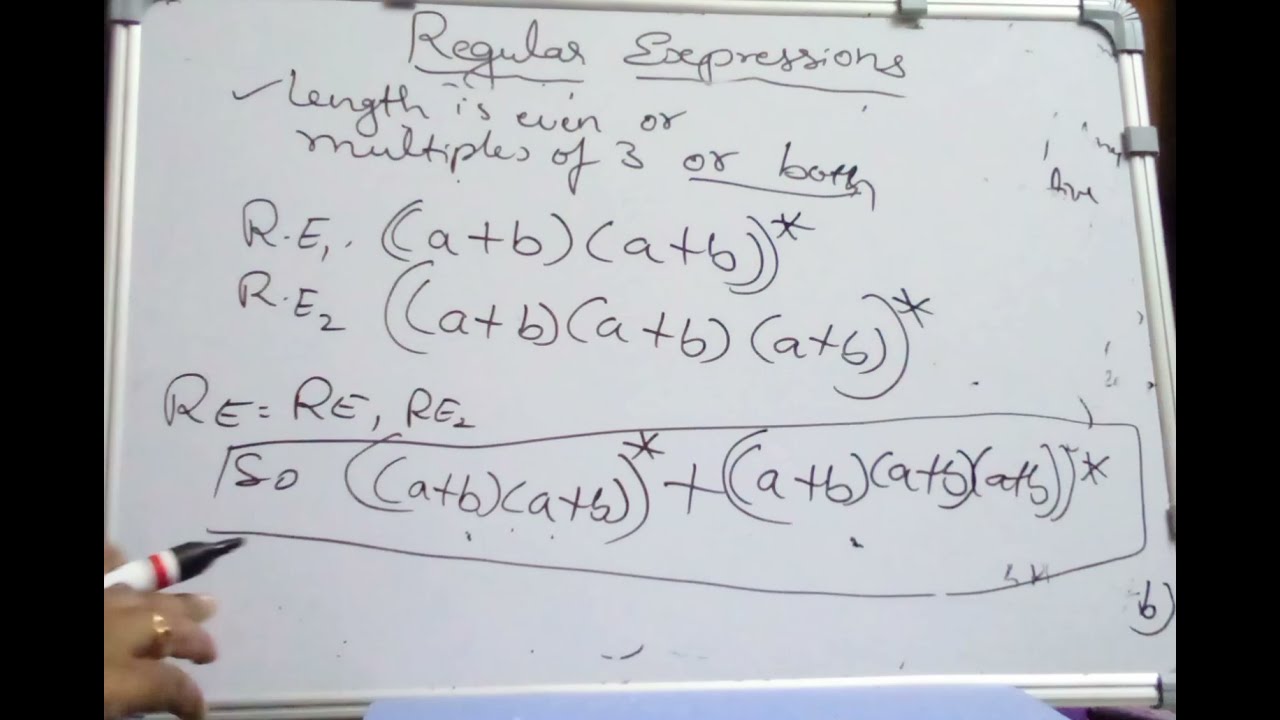 Regular Expressions
✓ Length is even or
multiples of 3 or both
R.E₁. ((a+b)(a+b))*
R.E₂ ((a+b)(a+b)(a+b))*
RE = RE, RE₂
So ((a+b)(a+b))* + ((a+b)(a+b)(a+b))*
b)